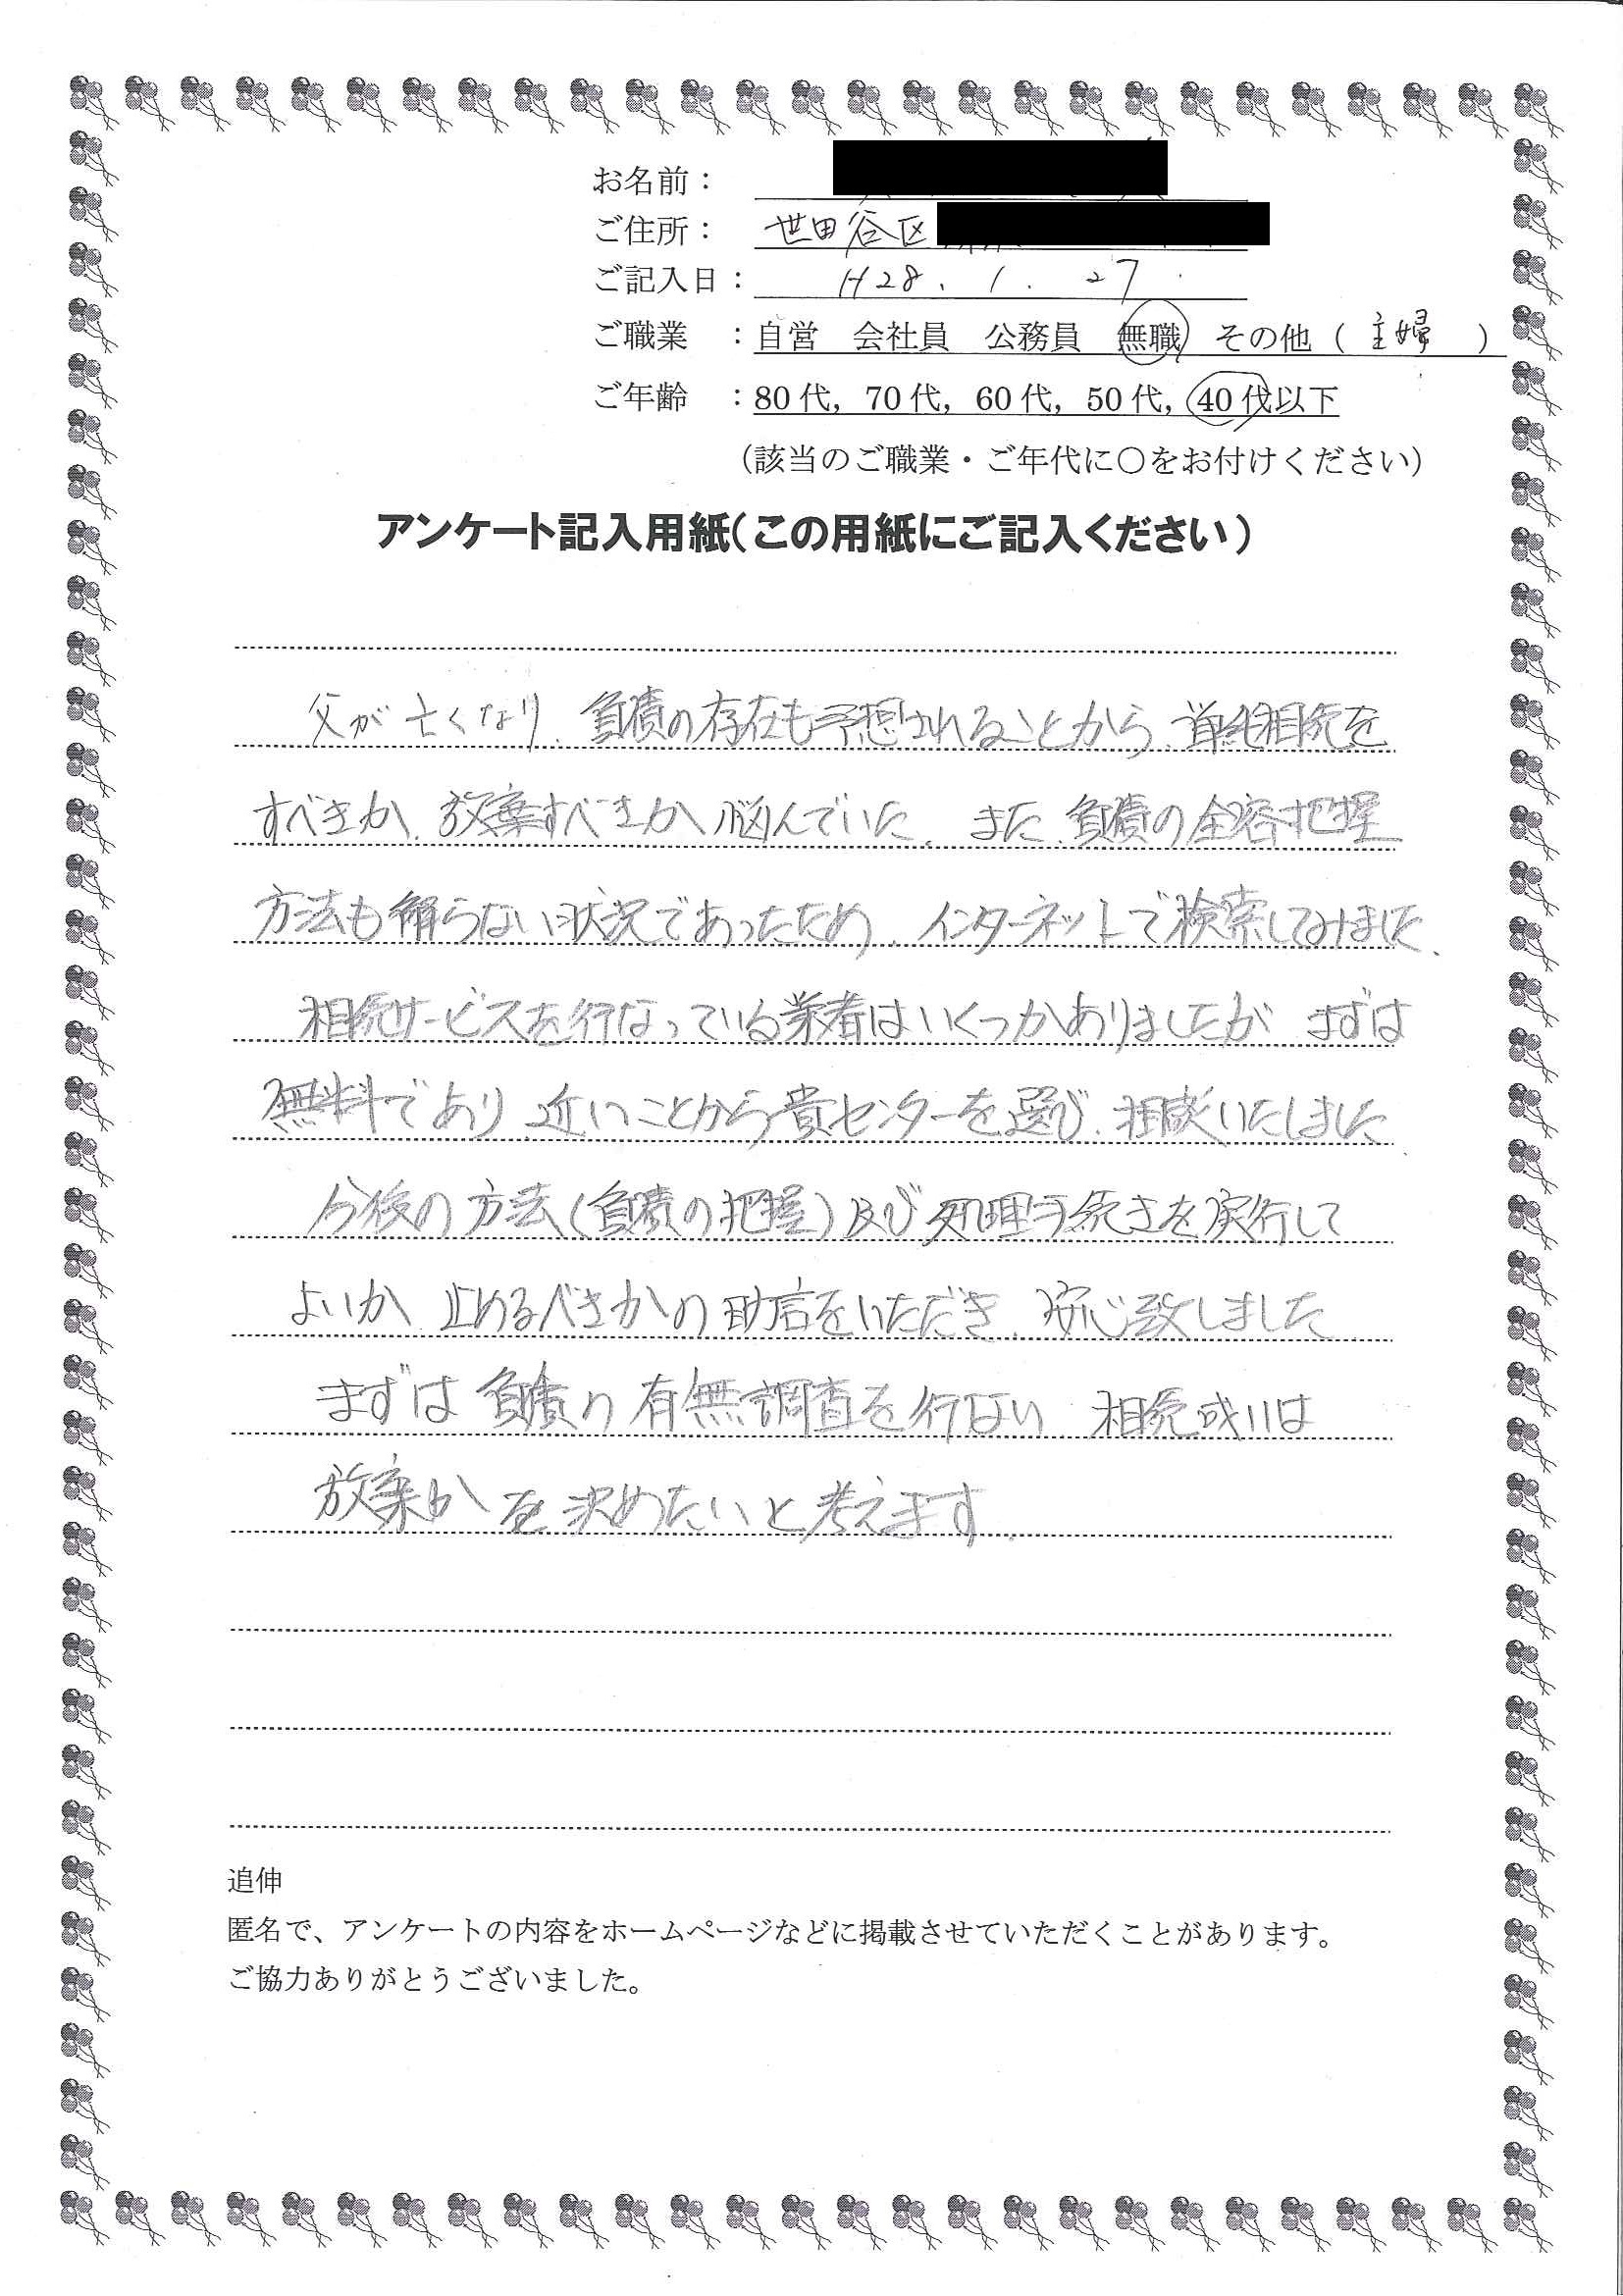 お名前：
ご住所： 世田谷区
ご記入日： H28. 1. 27
ご職業 ：自営 会社員 公務員 無職 その他（ 主婦 ）
ご年齢 ：80代，70代，60代，50代，40代以下
（該当のご職業・ご年代に○をお付けください）
アンケート記入用紙（この用紙にご記入ください）
父が亡くなり、負債の存在も予想されることから、単純相続を
すべきか、放棄すべきか悩んでいた、また、負債の全容把握
方法も解らない状況であったため、インターネットで検索してみました、
相続サービスを行なっている業者はいくつかありましたが まずは
無料であり、近いことから貴センターを選び、相談いたしました
今後の方法（負債の把握）及び処理手続きを実行して
よいか、止めるべきかの助言をいただき、安心致しました
まずは負債の有無調査を行ない 相続或いは
放棄かを決めたいと考えます.
追伸
匿名で、アンケートの内容をホームページなどに掲載させていただくことがあります。
ご協力ありがとうございました。